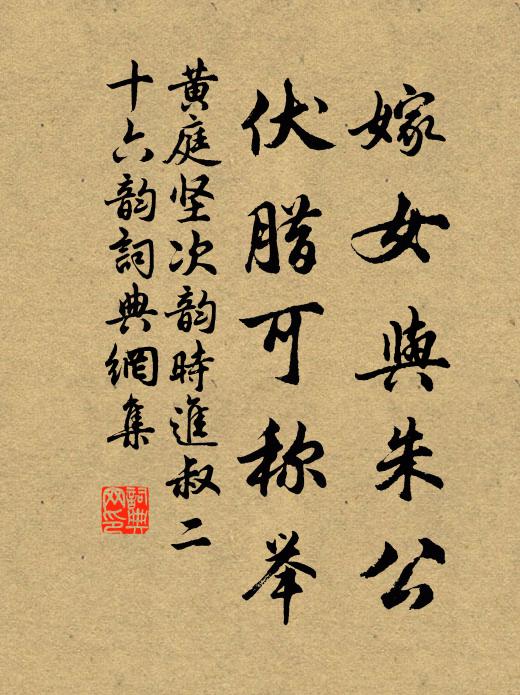 嫁女與朱公
伏腊可称举
黄庭坚次韵時進叔二
十六韵詞典網集
詞典网印